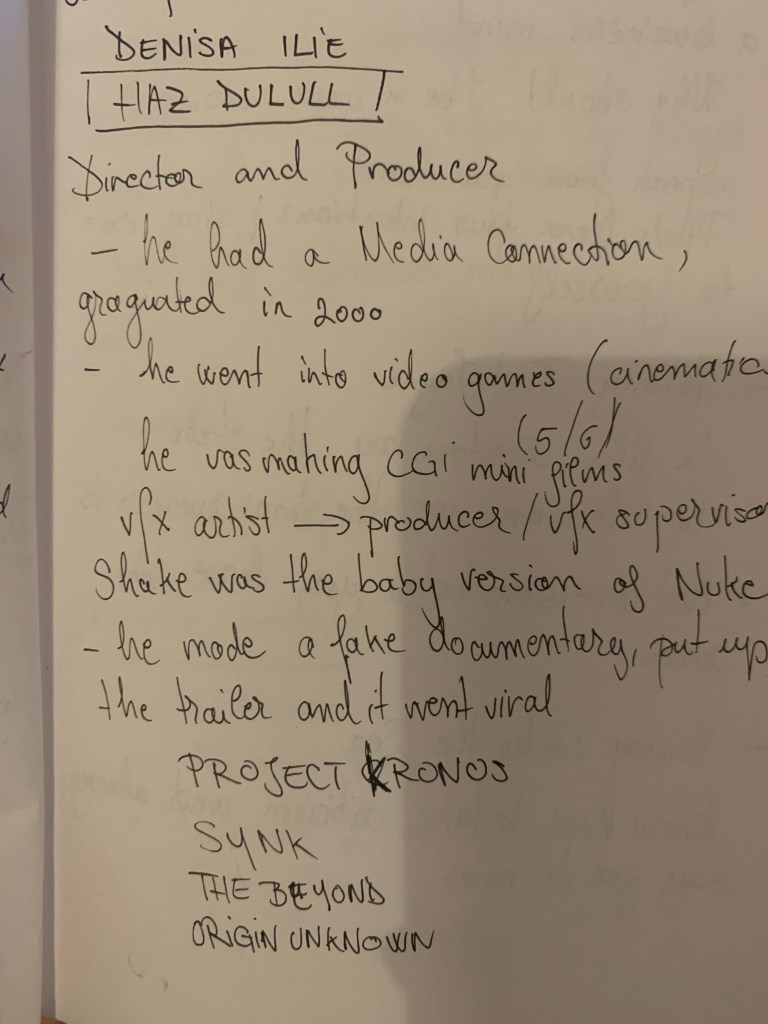 DENISA ILIE
HAZ DULULL
Director and Producer
- he had a Media Connection,
graguated in 2000
- he went into video games (cinematic
(5/6)
he vas making CGi mini films
vfx artist → producer / vfx superviso
Shake was the baby version of Nuke
- he made a fake documentary, put up
the trailer and it went viral
PROJECT KRONOS
SYNK
THE BEYOND
ORIGIN UNKNOWN